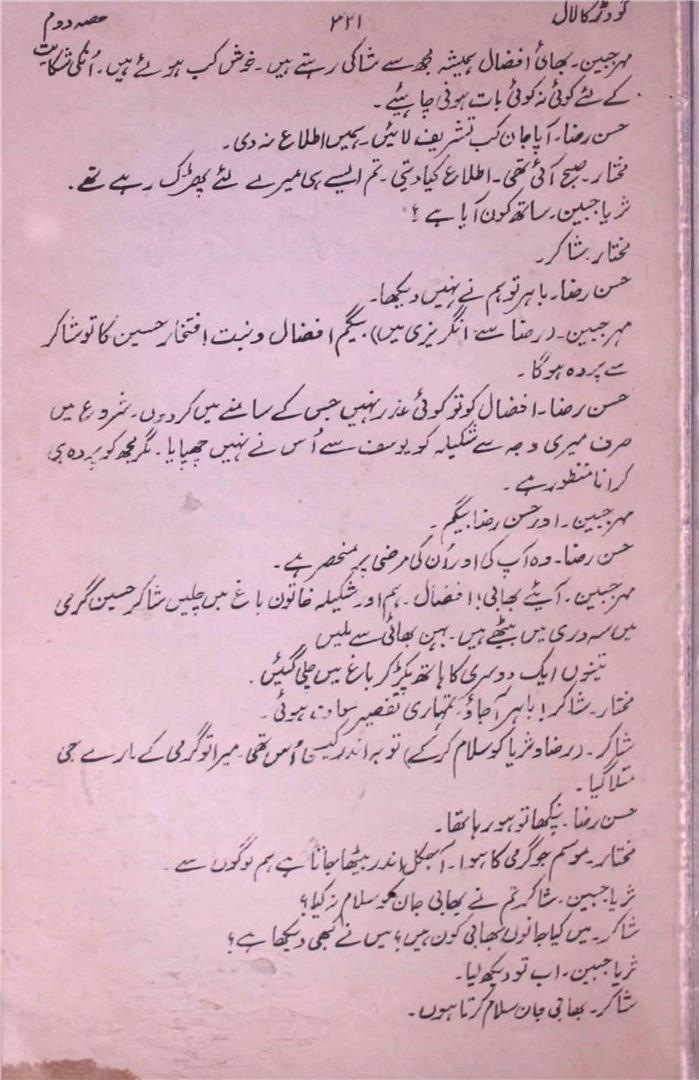 گودڑ کا لال ۳۲۱ حصہ دوم
مہر جبین۔ بھائی افضال ہمیشہ مجھ سے شاکی رہتے ہیں۔ خوش کب ہوئے ہیں۔ اُنکی شکایت
کے لئے کوئی نہ کوئی بات ہونی چاہئیے۔
حسن رضا۔ آپا جان کب تشریف لائیں۔ ہمیں اطلاع نہ دی۔
مختار۔ صبح آئی تھی۔ اطلاع کیا دیتی۔ تم ایسے ہی میرے لئے پھڑک رہے تھے۔
ثریا جبین۔ ساتھ کون آیا ہے؟
مختار۔ شاکر۔
حسن رضا۔ باہر تو ہم نے نہیں دیکھا۔
مہر جبین۔ (رضا سے انگریزی میں) بیگم افضال و بنت افتخار حسین کا تو شاکر
سے پردہ ہوگا۔
حسن رضا۔ افضال کو تو کوئی عذر نہیں جس کے سامنے میں کردوں۔ شروع میں
صرف میری وجہ سے شکیلہ کو یوسف سے اُس نے نہیں چھپایا۔ مگر مجھ کو پردہ ہی
کرانا منظور ہے۔
مہر جبین۔ اور حسن رضا بیگم۔
حسن رضا۔ وہ آپ کی اور اُن کی مرضی پر منحصر ہے۔
مہر جبین۔ آیئے بھابی! افضال۔ ہم اور شکیلہ خاتون باغ میں چلیں شاکر حسین گرمی
میں سہ دری میں بیٹھے ہیں۔ بہن بھائی سے ملیں
تینوں ایک دوسری کا ہاتھ پکڑ کر باغ میں چلی گئیں۔
مختار۔ شاکر! باہر آجاؤ۔ تمہاری تقصیر معاف ہوئی۔
شاکر۔ (رضا و ثریا کو سلام کرکے) توبہ اندر کیسی اُمس تھی۔ میرا تو گرمی کے مارے جی
متلا گیا۔
حسن رضا۔ پنکھا تو ہو رہا تھا۔
مختار۔ موسم جو گرمی کا ہوا۔ آجکل اندر بیٹھا جاتا ہے ہم لوگوں سے۔
ثریا جبین۔ شاکر تم نے بھابی جان کو سلام نہ کیا؟
شاکر۔ میں کیا جانوں بھابی کون ہیں؟ میں نے کبھی دیکھا ہے؟
ثریا جبین۔ اب تو دیکھ لیا۔
شاکر۔ بھابی جان سلام کرتا ہوں۔